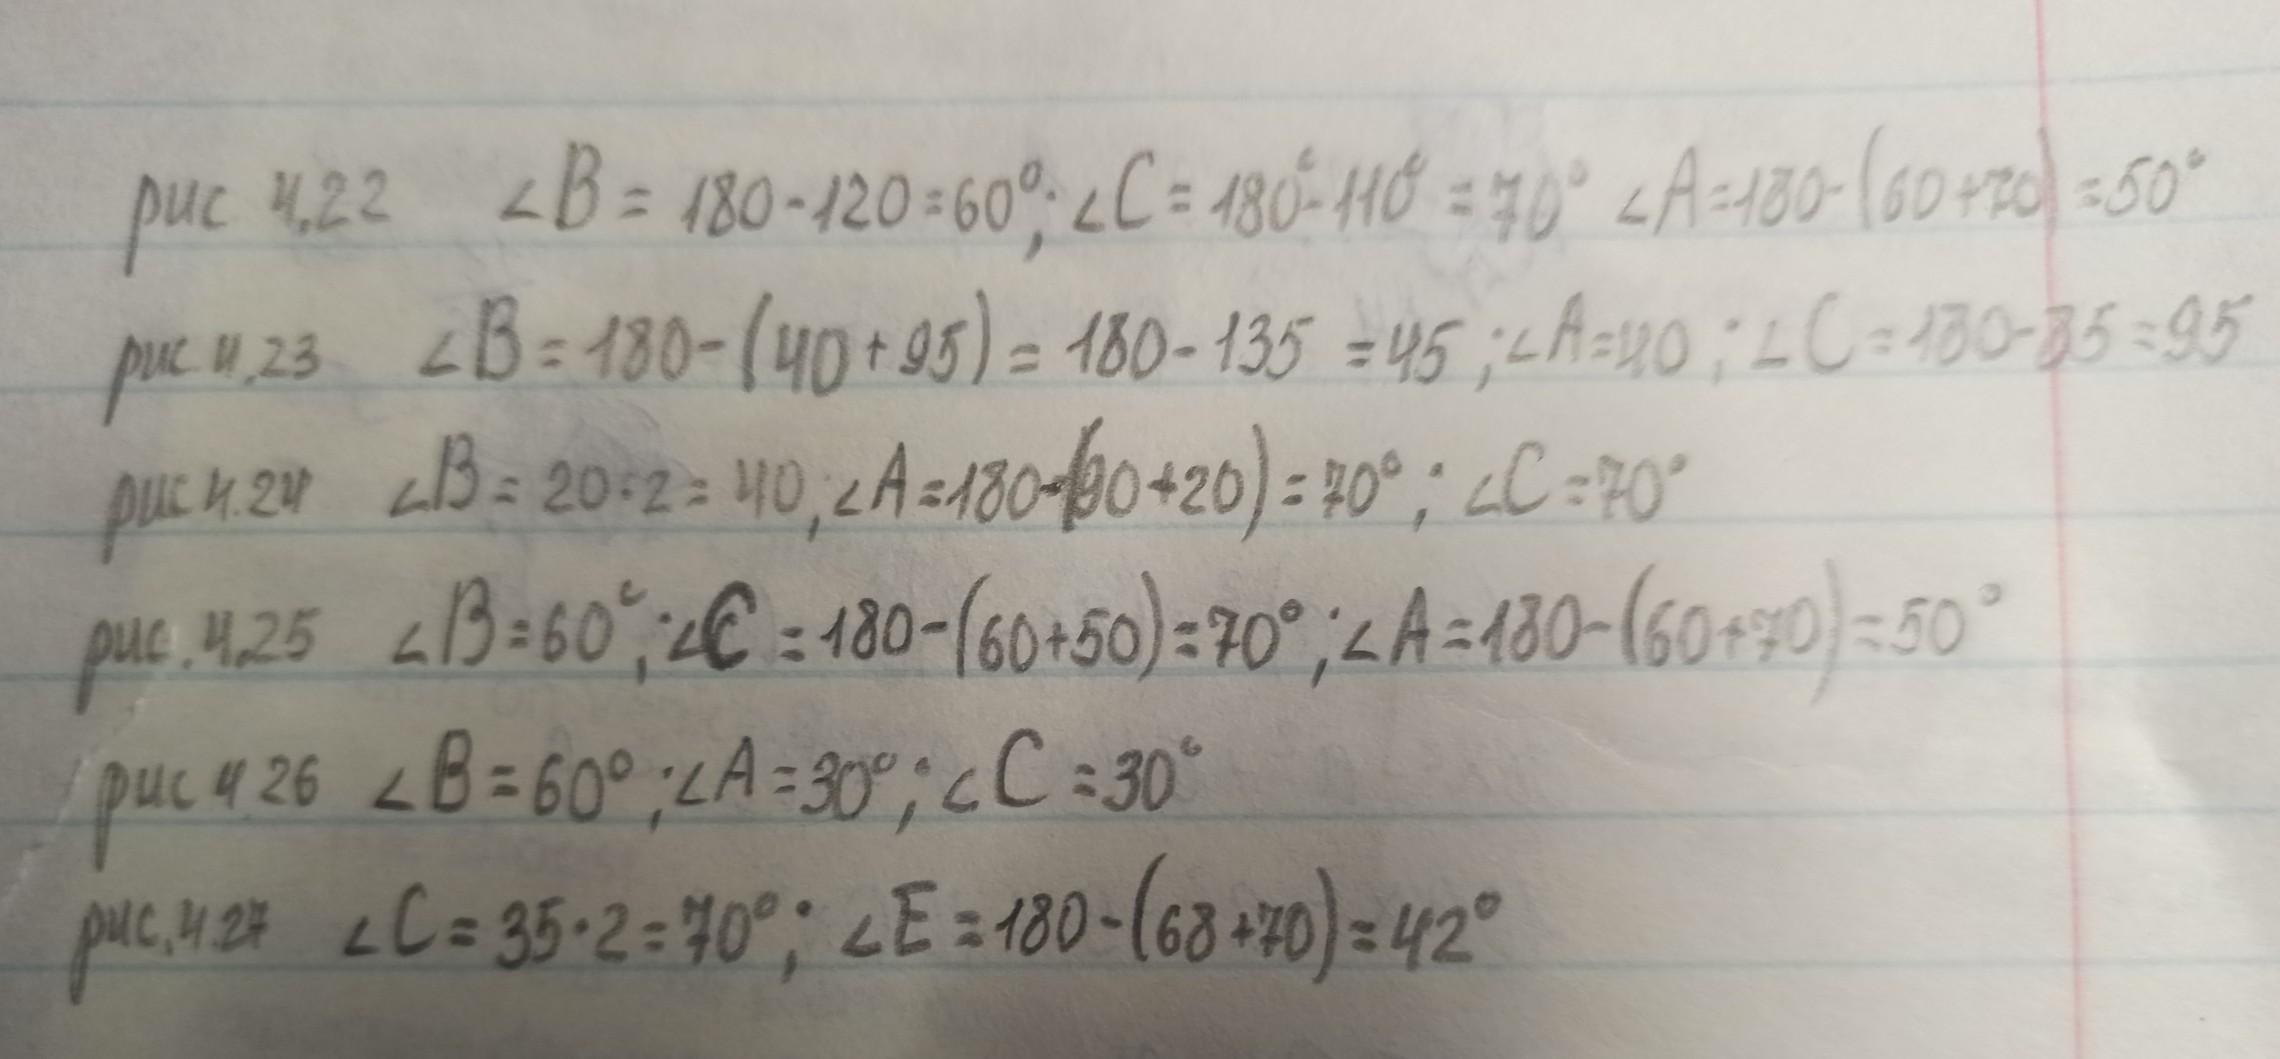 рис 4.22 ∠B = 180-120=60°; ∠C = 180°-110° = 70° ∠A=180-(60+70) =50°
рис 4.23 ∠B = 180-(40+95) = 180-135 =45; ∠A=40; ∠C = 180-85=95
рис 4.24 ∠B = 20·2= 40; ∠A=180-(90+20)=70°; ∠C=70°
рис. 4.25 ∠B=60°; ∠C =180-(60+50)=70°; ∠A=180-(60+70)=50°
рис 4 26 ∠B=60°; ∠A=30°; ∠C =30°
рис. 4.27 ∠C = 35·2=70°; ∠E=180-(68+70)=42°